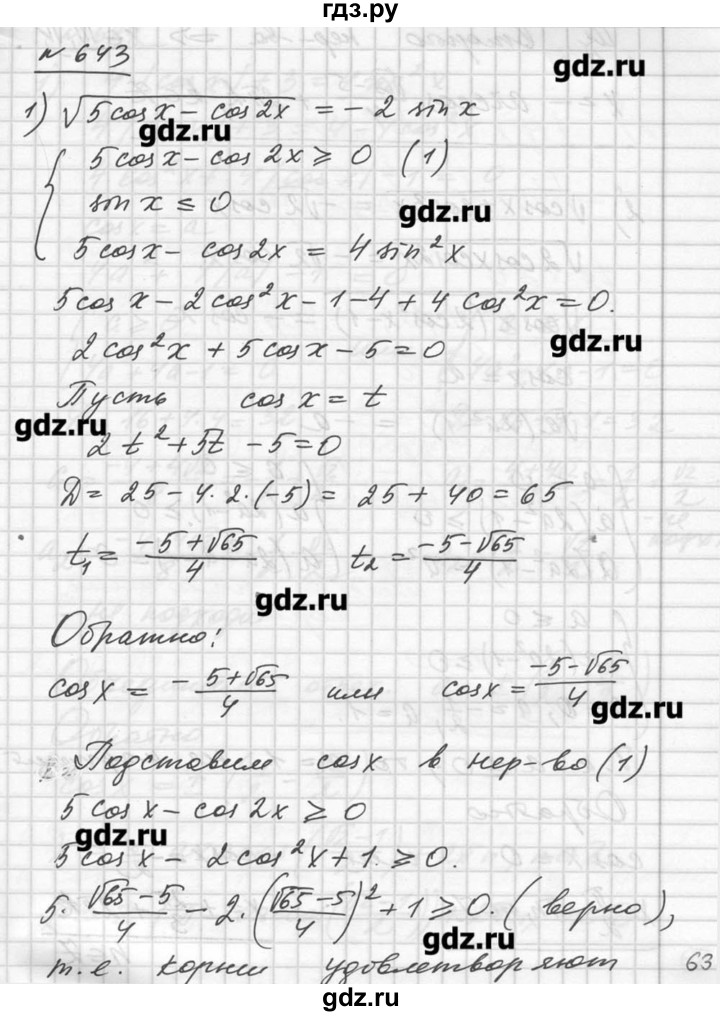 гдз.ру
№ 643
gdz.ru
1) √(5cosx - cos2x) = -2 sinx
gdz.ru
{ 5cosx - cos2x ≥ 0 (1)
sin x ≤ 0
gdz.ru
5cosx - cos2x = 4sin²x
5cos x - 2cos²x - 1 - 4 + 4 cos²x = 0.
gdz.ru
2cos²x + 5cosx - 5 = 0
Пусть cos x = t
gdz.ru
2t² + 5t - 5 = 0
Д = 25 - 4·2·(-5) = 25 + 40 = 65
t₁ = (-5+√65)/4 t₂ = (-5-√65)/4
gdz.ru
Обратно:
cosx = -(5+√65)/4 или cosx = (-5-√65)/4
gdz.ru
Подставим cosx в нер-во (1)
5cosx - cos2x ≥ 0
gdz.ru
5cosx - 2cos²x + 1 ≥ 0.
5·(√65-5)/4 - 2·((√65-5)/4)² + 1 ≥ 0. (верно),
gdz.ru
т.е. корни удовлетворяют
63
gdz.ru